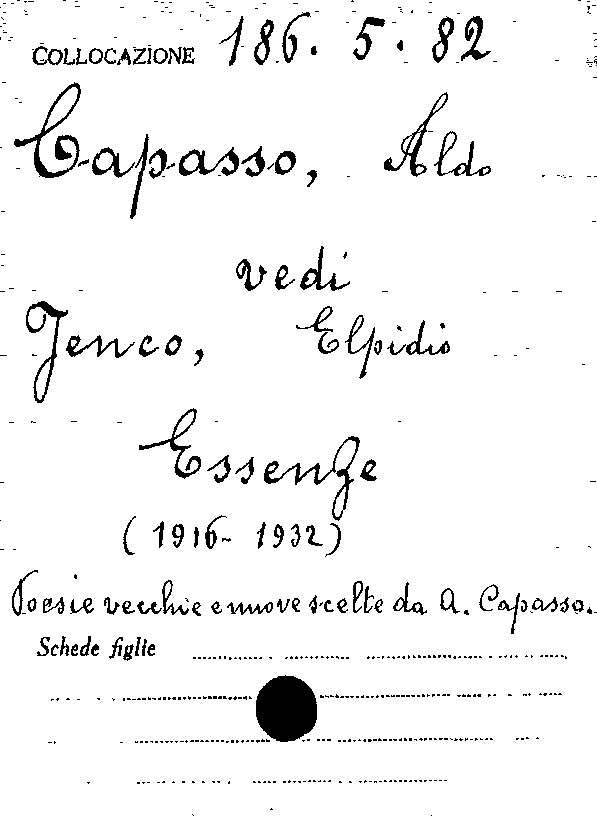 COLLOCAZIONE 186. 5. 82
Capasso, Aldo
vedi
Jenco, Elpidio
Essenze
(1916-1932)
Poesie vecchie e nuove scelte da A. Capasso.
Schede figlie